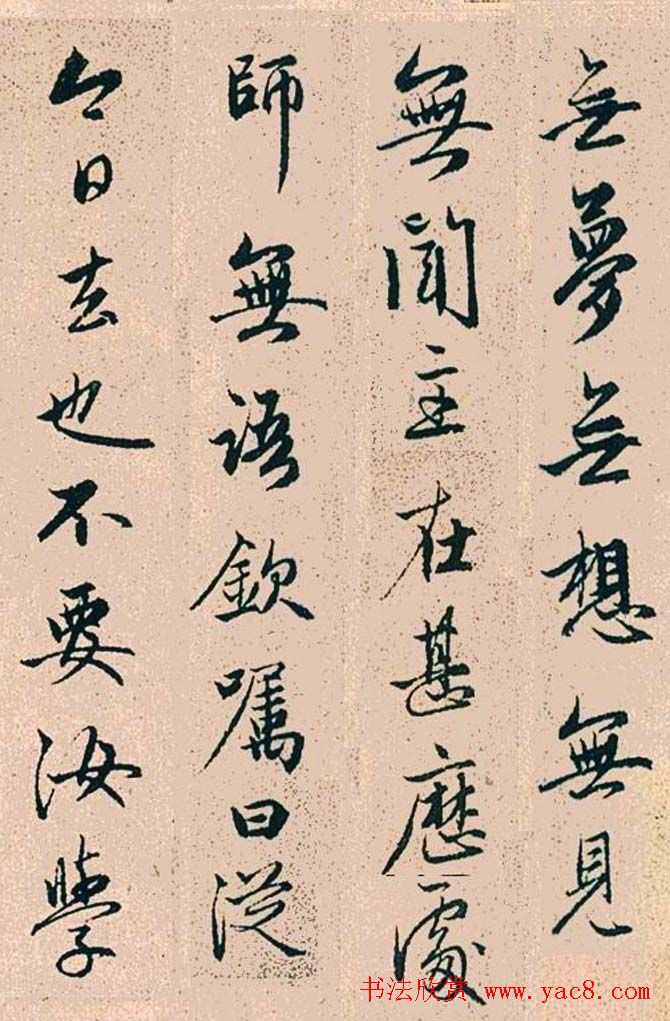 無夢無想無見
無聞主在甚麼處
師無語欽嘱曰從
今日去也不要汝學
书法欣赏 www.yac8.com